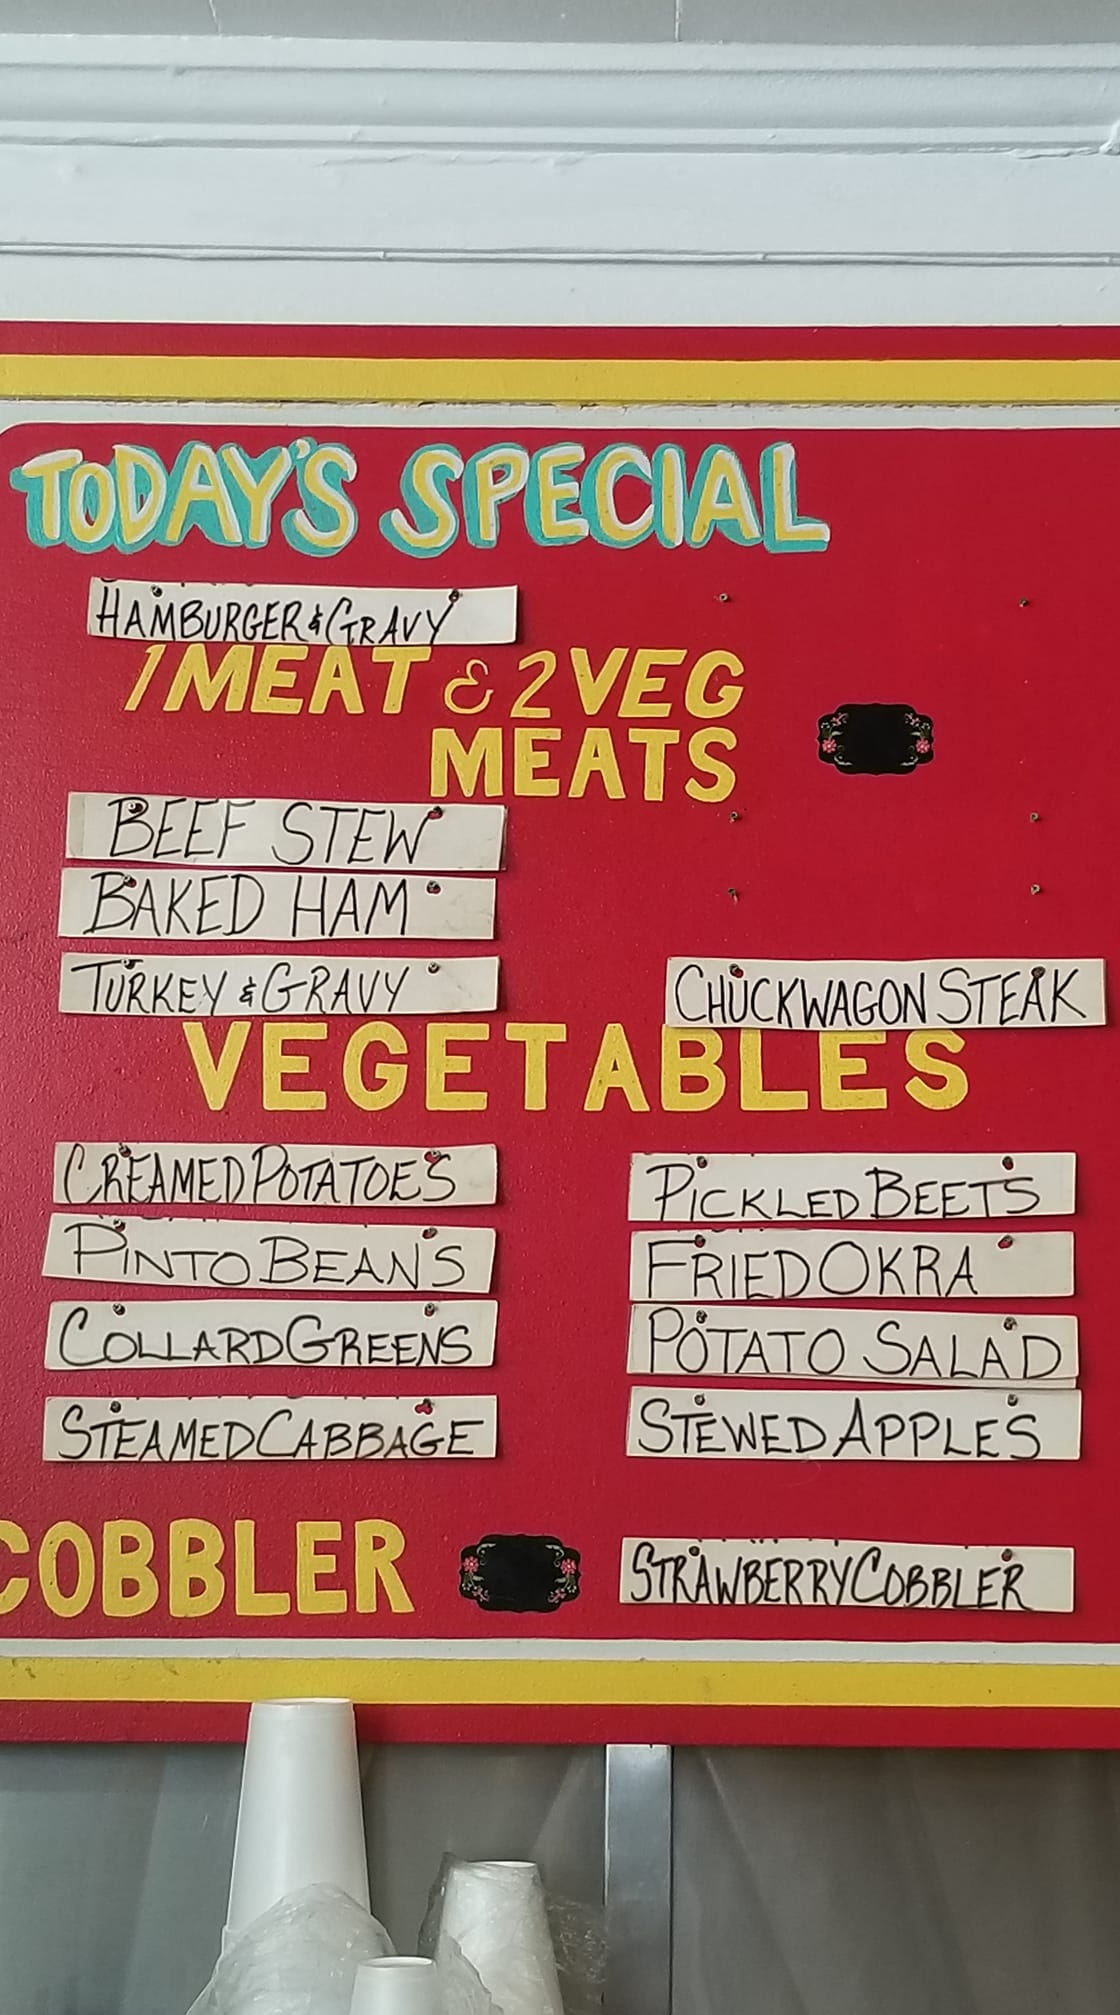 TODAY'S SPECIAL
HAMBURGER & GRAVY
1 MEAT & 2 VEG
MEATS
BEEF STEW
BAKED HAM
TURKEY & GRAVY
CHUCKWAGON STEAK
VEGETABLES
CREAMED POTATOES
PINTO BEANS
COLLARD GREENS
STEAMED CABBAGE
PICKLED BEETS
FRIED OKRA
POTATO SALAD
STEWED APPLES
COBBLER
STRAWBERRY COBBLER